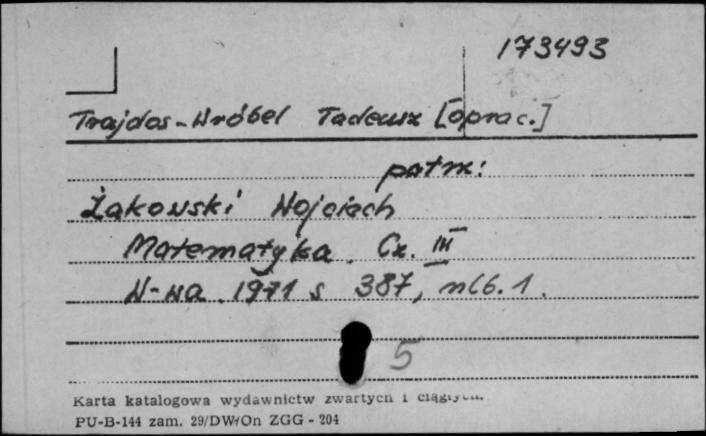 173493
Trajdos-Wróbel Tadeusz [oprac.]
patrz:
Żakowski Wojciech
Matematyka. Cz. III
W-wa 1971 s 387, nlb. 1.
5
Karta katalogowa wydawnictw zwartych i ciągłych.
PU-B-144 zam. 29/DW/On ZGG - 204